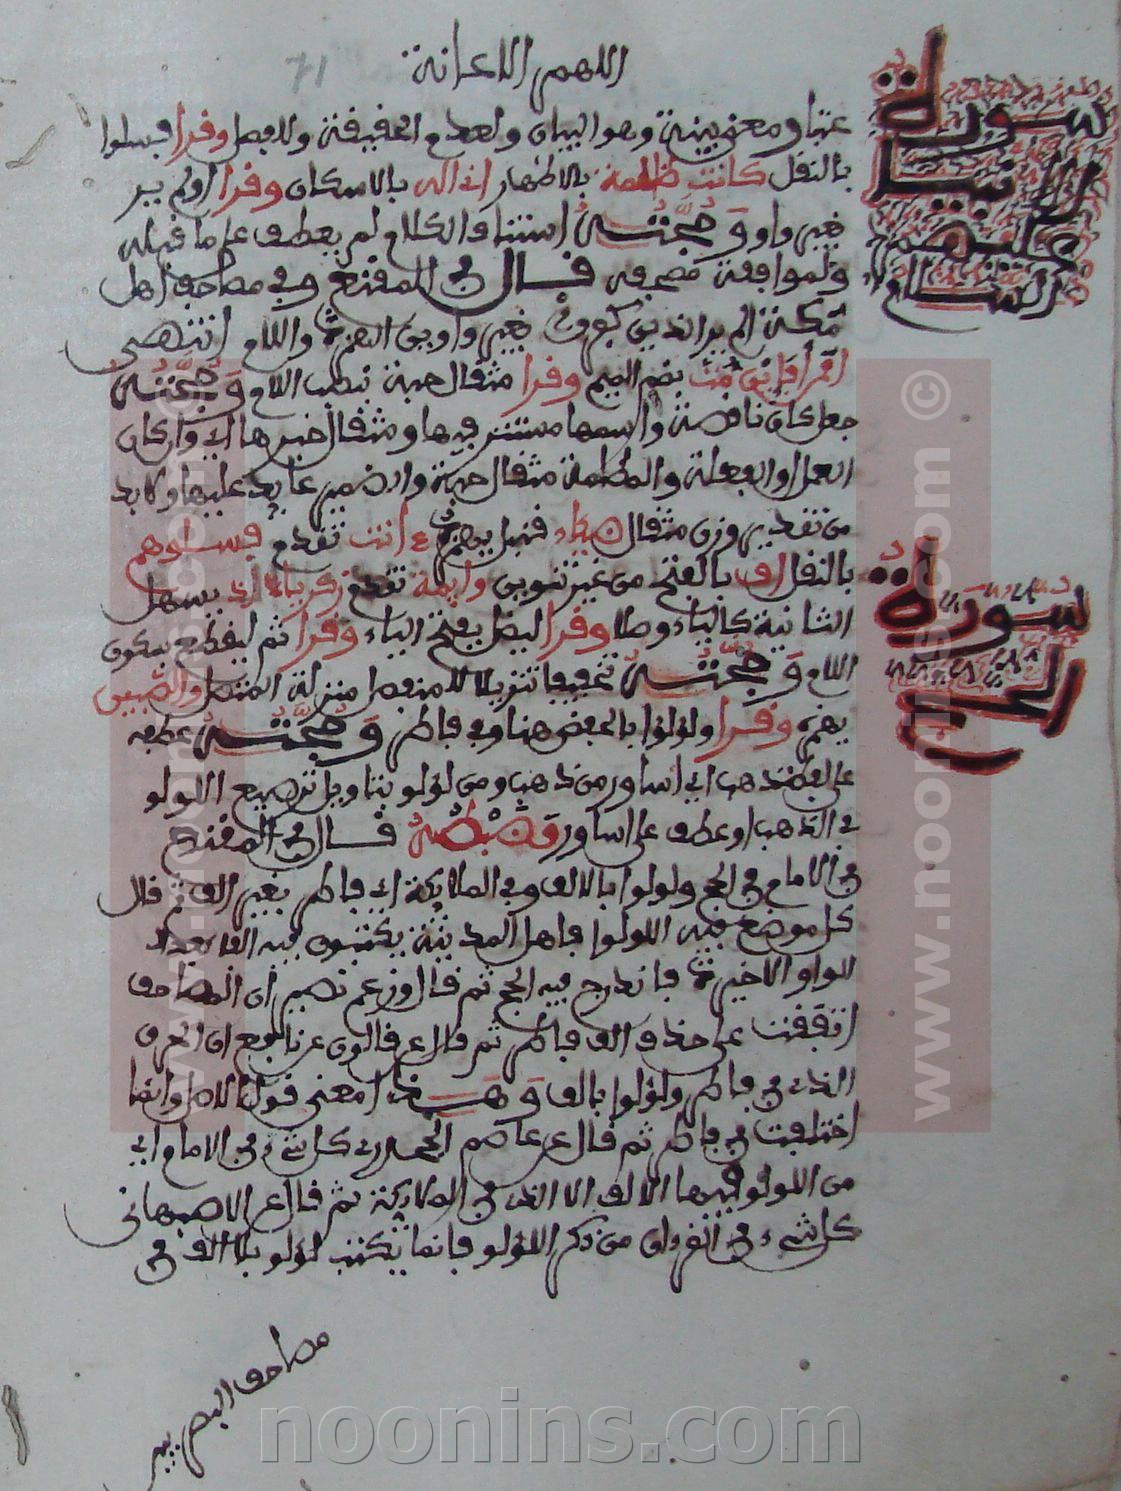 اللهم الاعانة
71
سورة
الانبياء
عليهم
السلام
وهو البيان ولعدم الحقيقة وللفصل وقرا فسلوا
بالنقل كانت ظلمة بالاظهار اني اله بالاسكان وقرا اولم ير
بغير واو وحجته استئناف الكلام لم يعطف على ما قبله
ولموافقة مصحفه قال في المقنع وفي مصاحف اهل
مكة الم ير الذين كفروا بغير واو بين الهمزة واللام انتهى
مت بضم الميم وقرا مثقال حبة بنصب اللام وحجته
جعل كان ناقصة واسمها مستتر فيها ومثقال خبرها اي وان كان
العمل او الفعلة والمظلمة مثقال حبة والضمير عايد عليها ولا بد
من تقدير وزن مثقال ضياء قنبل بهمز انت تقدم فسلوهم
بالنقل اف بالفتح من غير تنوين وايمة تقدم زكرياء اذ يسهل
الثانية كالياء وصلا وقرا ليضل بفتح الياء وقرا ثم ليقطع بسكون
اللام وحجته تخفيفا تنزيلا للمنفصل منزلة المتصل والصبين
بهمز وقرا ولؤلؤا بالخفض هنا وفي فاطر وحجته عطفه
على لفظ ذهب اي اساور من ذهب ومن لؤلؤ بتاويل ترصيع اللولو
في الذهب او عطف على اساور ونصبه قال في المقنع
في الامام في الحج ولولوا بالالف وفي الملايكة اي فاطر بغير الف ثم قال
كل موضع فيه اللولوا فاهل المدينة يكتبون فيه الفا بعد
الواو الاخيرة فاندرج فيه الحج ثم قال وزعم نصير ان المصاحف
اتفقت على حذف الف فاطر ثم قال عن قالون عن نافع ان الحرف
الذي في فاطر ولؤلوا بالف وهذا معنى قول الاصل وانما
اختلفت في فاطر ثم قال عن عاصم الجحدري كل شيء في الامام اي
من اللولو فيها الالف الا التي في الملايكة ثم قال عن الاصبهاني
كل شيء في القرءان من ذكر اللؤلو فانما يكتب لؤلو بلا الف في
مصاحف البصريين
سورة
الحج
www.noonins.com ©
noonins.com